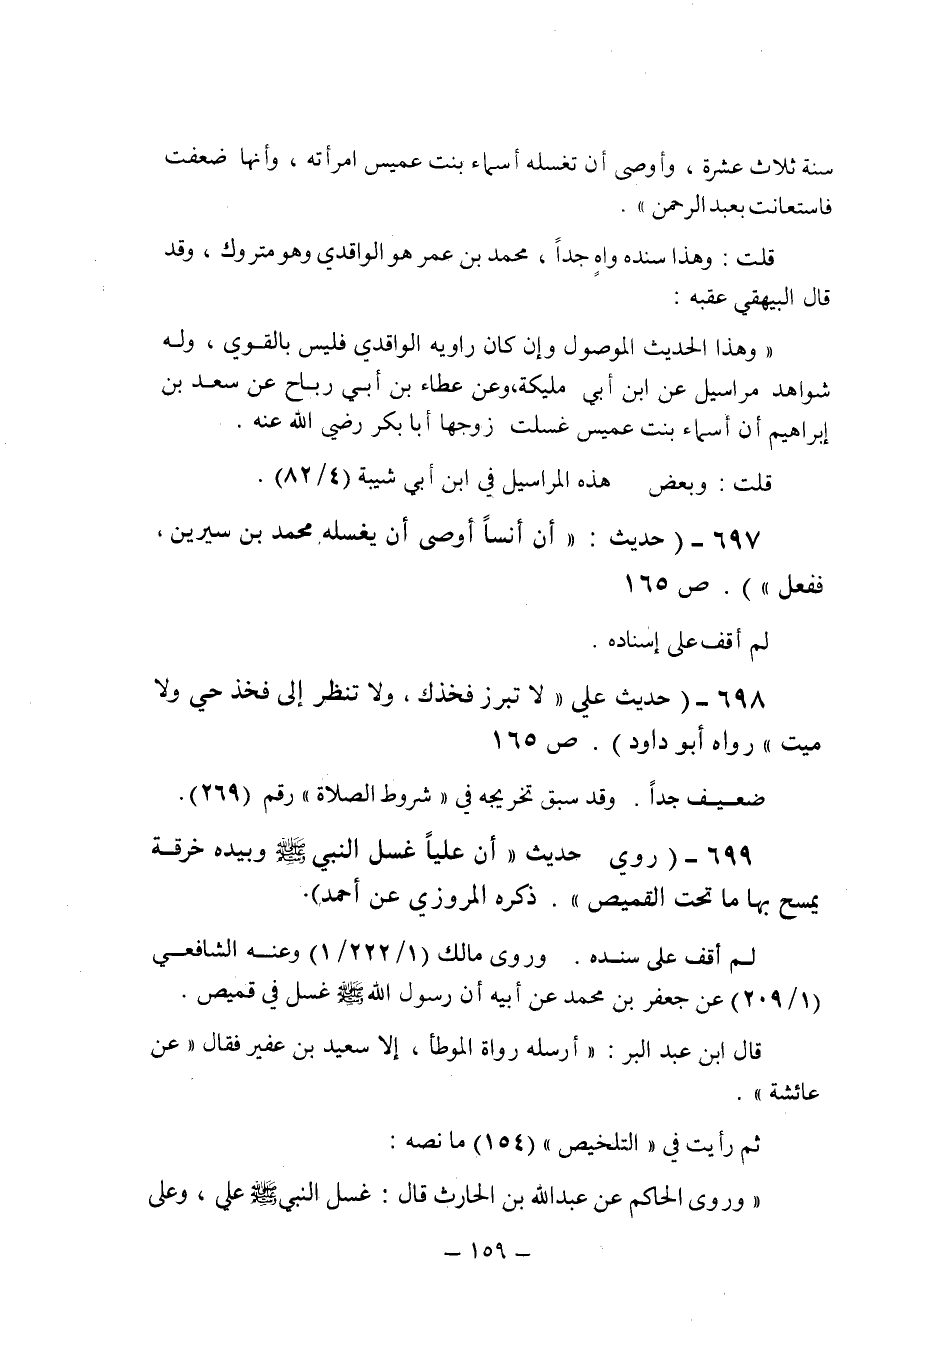 سنة ثلاث عشرة ، وأوصى أن تغسله أسماء بنت عميس امرأته ، وأنها ضعفت
فاستعانت بعبد الرحمن » .
قلت : وهذا سنده واهٍ جداً ، محمد بن عمر هو الواقدي وهو متروك ، وقد
قال البيهقي عقبه :
« وهذا الحديث الموصول وإن كان راويه الواقدي فليس بالقوي ، وله
شواهد مراسيل عن ابن أبي مليكة،وعن عطاء بن أبي رباح عن سعد بن
إبراهيم أن أسماء بنت عميس غسلت زوجها أبا بكر رضي الله عنه .
قلت : وبعض هذه المراسيل في ابن أبي شيبة (٤/ ٨٢) .
٦٩٧ ـ ( حديث : « أن أنساً أوصى أن يغسله محمد بن سيرين ،
ففعل » ) . ص ١٦٥
لم أقف على إسناده .
٦٩٨ ـ ( حديث علي « لا تبرز فخذك ، ولا تنظر إلى فخذ حي ولا
ميت » رواه أبو داود ) . ص ١٦٥
ضعيف جداً . وقد سبق تخريجه في « شروط الصلاة » رقم (٢٦٩).
٦٩٩ ـ ( روي حديث « أن علياً غسل النبي ﷺ وبيده خرقة
يمسح بها ما تحت القميص » . ذكره المروزي عن أحمد).
لم أقف على سنده . وروى مالك (١/ ٢٢٢/ ١) وعنه الشافعي
(١/ ٢٠٩) عن جعفر بن محمد عن أبيه أن رسول الله ﷺ غسل في قميص .
قال ابن عبد البر : « أرسله رواة الموطأ ، إلا سعيد بن عفير فقال « عن
عائشة » .
ثم رأيت في « التلخيص » (١٥٤) ما نصه :
« وروى الحاكم عن عبدالله بن الحارث قال : غسل النبي ﷺ علي ، وعلى
ـ ١٥٩ ـ